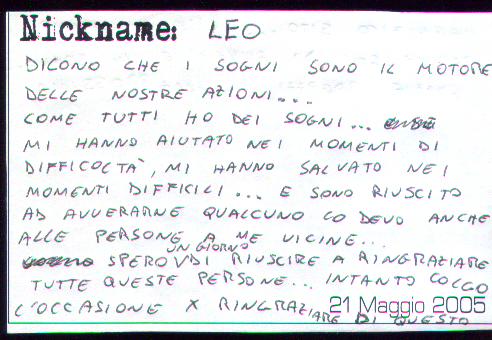 Nickname: LEO
DICONO CHE I SOGNI SONO IL MOTORE
DELLE NOSTRE AZIONI...
COME TUTTI HO DEI SOGNI...
MI HANNO AIUTATO NEI MOMENTI DI
DIFFICOLTÀ, MI HANNO SALVATO NEI
MOMENTI DIFFICILI... E SONO RIUSCITO
AD AVVERARNE QUALCUNO LO DEVO ANCHE
ALLE PERSONE A ME VICINE...
UN GIORNO
SPERO DI RIUSCIRE A RINGRAZIARE
TUTTE QUESTE PERSONE... INTANTO COLGO
L'OCCASIONE X RINGRAZIARE DI QUESTO
21 Maggio 2005